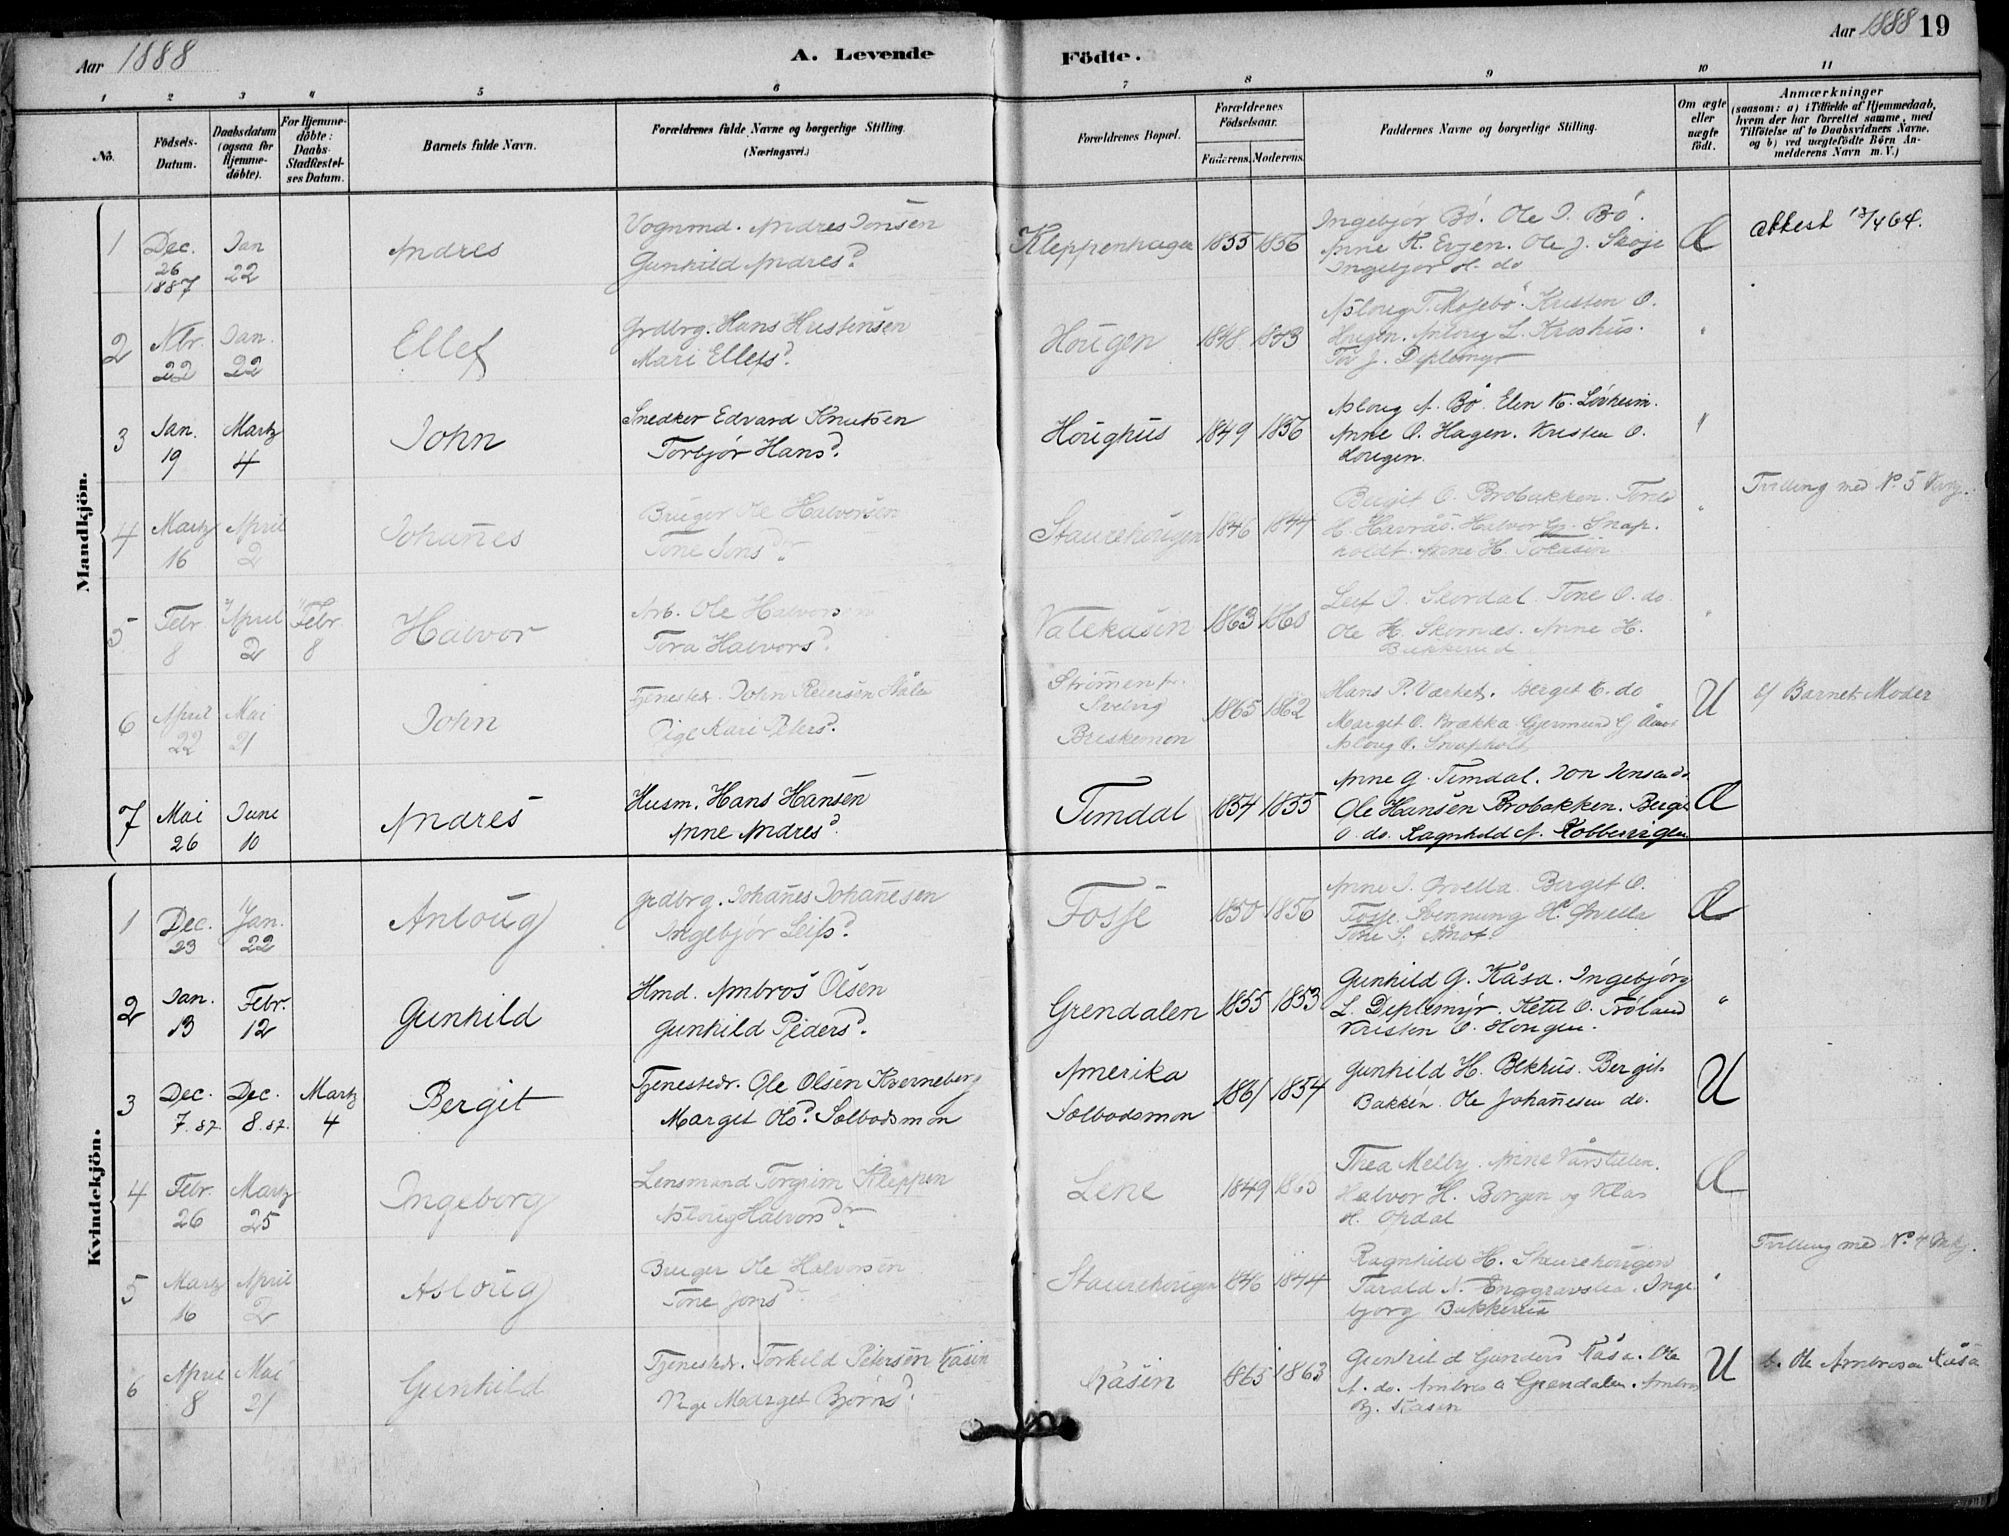 Aar 1888
A. Levende
Födte.
Aar 1888 19
1 2 3 4 5 6 7 8 9 10 11
No.
Födsels-Datum.
Daabsdatum (ogsaa for Hjemmedöbte).
For Hjemmedöbte: Daabs-Stadfæstelses Datum.
Barnets fulde Navn.
Forældrenes fulde Navne og borgerlige Stilling.
(Næringsvei.)
Forældrenes Bopæl.
Forældrenes Födselsaar.
Faderens. Moderens.
Faddernes Navne og borgerlige Stilling.
Om ægte eller uægte födt.
Anmærkninger
(saasom: a) i Tilfælde af Hjemmedaab, hvem der har forrettet samme, med Tilföielse af to Daabsvidners Navne, og b) ved uægtefödte Börn Anmelderens Navn m. V.)
Mandkjön.
1 Dec. 26 1887 Jan 22 Andres
Vognmd. Andres Jonsen
Gunhild Andresd.
Kleppenhagen 1855 1856
Ingebjør Bö. Ole J. Bö.
Anne K. Evjen. Ole J. Skoje
Ingebjør H. do
Æ
Attest 13/4 64.
2 Nbr. 22 Jan. 22 Ellef
Grdbrg. Hans Kristensen
Mari Ellefsd.
Hougen 1848 1843
Asloug T. Mosebö. Kristen O.
Hougen. Asloug L. Kroshus.
Tor J. Diplemyr
"
3 Jan. 19 Martz 4 John
Snedker Edvard Knutsen
Torbjør Hansd.
Houghus 1849 1856
Asloug A. Bö. Elen K. Lövheim.
Anne O. Hagen. Kristen O.
Hougen.
"
4 Martz 16 April 2 Johanes
Bruger Ole Halvorsen
Tone Jonsd.
Staurehougen 1846 1844
Bergit O. Brobakken. Tone
H. Havraas. Halvor G. Snap-
holdt. Anne H. Tokasin
"
Tvilling med No. 5 Kvkj.
5 Febr 8 April 2 Febr 8 Halvor
Arb. Ole Halvorsen
Tora Halvorsd.
Valekåsin 1863 1860
Leif J. Skordal. Tone O. do.
Ole H. Skornes. Anne H.
Bakkerud
"
6 April 22 Mai 21 John
Tjenestedr. John Petersen
Pige Kari Petersd.
Strömen p. Svelvig
Briskemon
1865 1862
Hans P. Værket. Berget E. do
Marget O. Brækka. Gjermund G. Åmot
Asloug O. Snapholt
U
b/ Barnets Moder
7 Mai 26 June 10 Andres
Husm. Hans Hansen
Anne Andresd.
Timdal 1854 1855
Anne G. Timdal. Jon Jonsen do
Ole Hansen Brobakken. Bergit
O. do. Ragnhild A. Kobbervigen
Æ
Kvindekjön.
1 Dec. 23 Jan. 22 Anloug
Grdbrg. Johanes Johanesen
Ingebjör Leifsd.
Fosse 1850 1856
Anne J. Qvella. Berget O.
Fosse. Svennung H. Qvella
Tone S. Åmot.
Æ
2 Jan. 13 Febr. 12 Gunhild
Hmd. Ambros Olsen
Gunhild Pedersd.
Grendalen 1855 1853
Gunhild G. Kåsa. Ingebjörg
L. Diplemyr. Ketil O. Tröland
Kristen O. Hougen.
"
3 Dec. 7. 87. Dec. 8. 87. Martz 4 Bergit
Tjenestedr. Ole Olsen Kverneberg
Marget Olsd. Solbodsmon
Amerika
Solbodsmon
1861 1854
Gunhild H. Bekhus. Bergit
Bakken. Ole Johanesen do.
U
4 Febr. 26 Martz 25 Ingeborg
Lensmand Torgrim Kleppen
Asloug Halvorsd.
Lene 1849 1863
Thea Melby. Anne Vårstulen.
Halvor H. Borgen og Klas
H. Opdal
Æ
5 Martz 16 April 2 Asloug
Bruger Ole Halvorsen
Tone Jonsd.
Staurehougen 1846 1844
Ragnhild H. Staurehougen
Tarald N. Enggravslia. Inge-
bjorg Bakkerud
"
Tvilling med No. 4 Mkj.
6 April 8 Mai 21 Gunhild
Tjenestedr. Torkild Petersen Kåsin
Pige Marget Björnsd.
Kåsin 1865 1863
Gunhild Gundersd. Kåsa. Ole
A. do. Ambros O. Grendalen. Ambros
Bj. Kåsen
U
b. Ole Ambrosen Kåsa